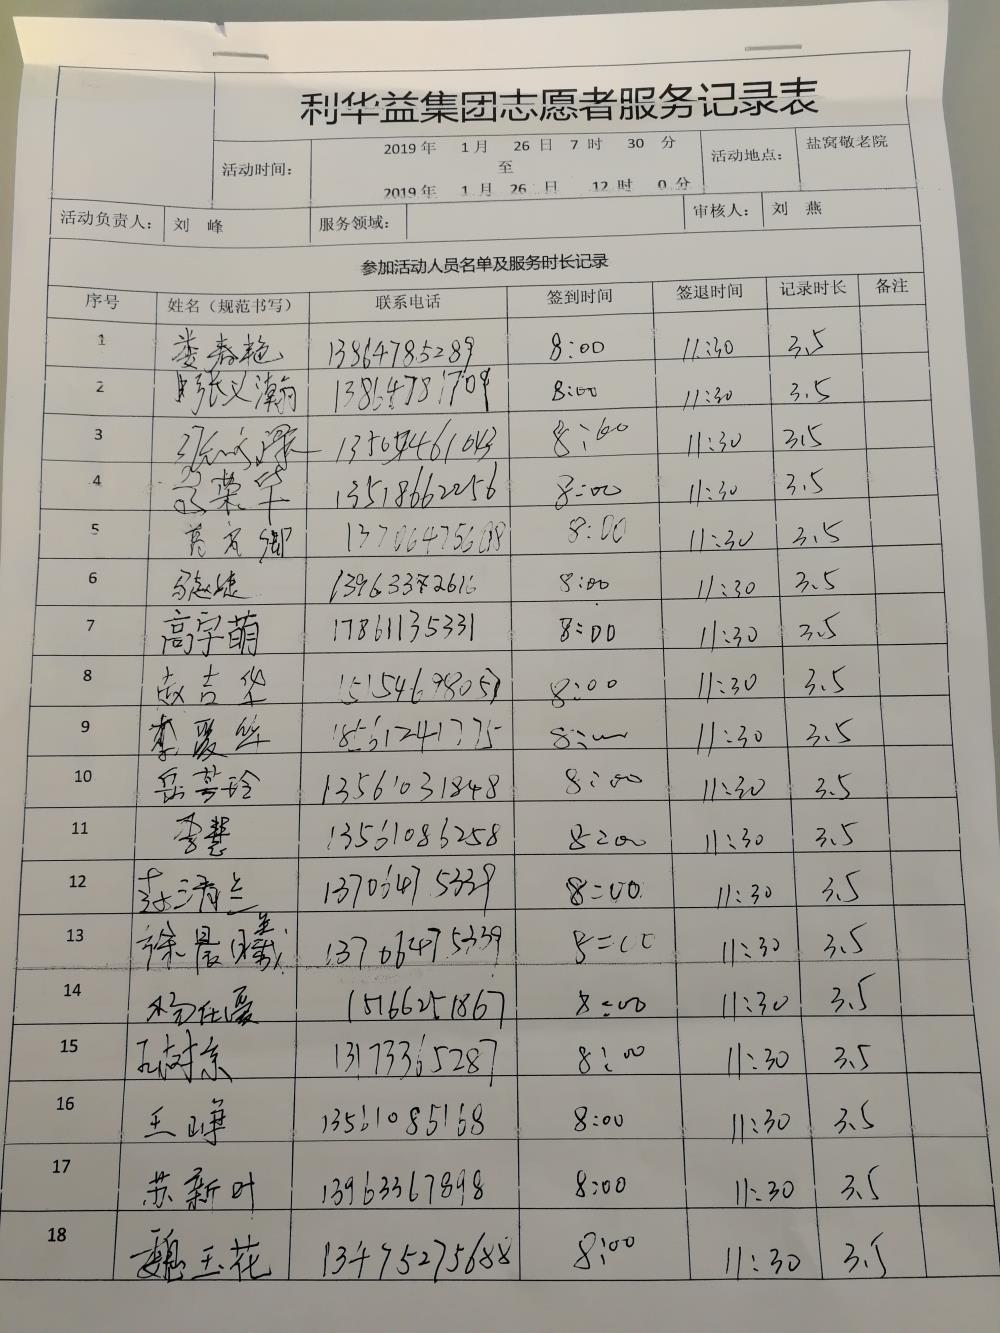 利华益集团志愿者服务记录表
活动时间： 2019 年 1 月 26 日 7 时 30 分 至 2019 年 1 月 26 日 12 时 0 分 活动地点： 盐窝敬老院
活动负责人： 刘 峰 服务领域： 审核人： 刘 燕
参加活动人员名单及服务时长记录
序号 姓名（规范书写） 联系电话 签到时间 签退时间 记录时长 备注
1 娄春艳 13864785289 8:00 11:30 3.5
2 张义瀚 13864781709 8:00 11:30 3.5
3 8:00 11:30 3.5
4 荣华 13518662256 8:00 11:30 3.5
5 8:00 11:30 3.5
6 8:00 11:30 3.5
7 高宇萌 17861135331 8:00 11:30 3.5
8 赵吉华 8:00 11:30 3.5
9 8:00 11:30 3.5
10 岳芳玲 13561031848 8:00 11:30 3.5
11 李慧 13561086258 8:00 11:30 3.5
12 13706475339 8:00 11:30 3.5
13 徐晨曦 13706475339 8:00 11:30 3.5
14 15166251867 8:00 11:30 3.5
15 13173365287 8:00 11:30 3.5
16 王 13561085168 8:00 11:30 3.5
17 苏新叶 13963367898 8:00 11:30 3.5
18 魏玉花 13475275688 8:00 11:30 3.5